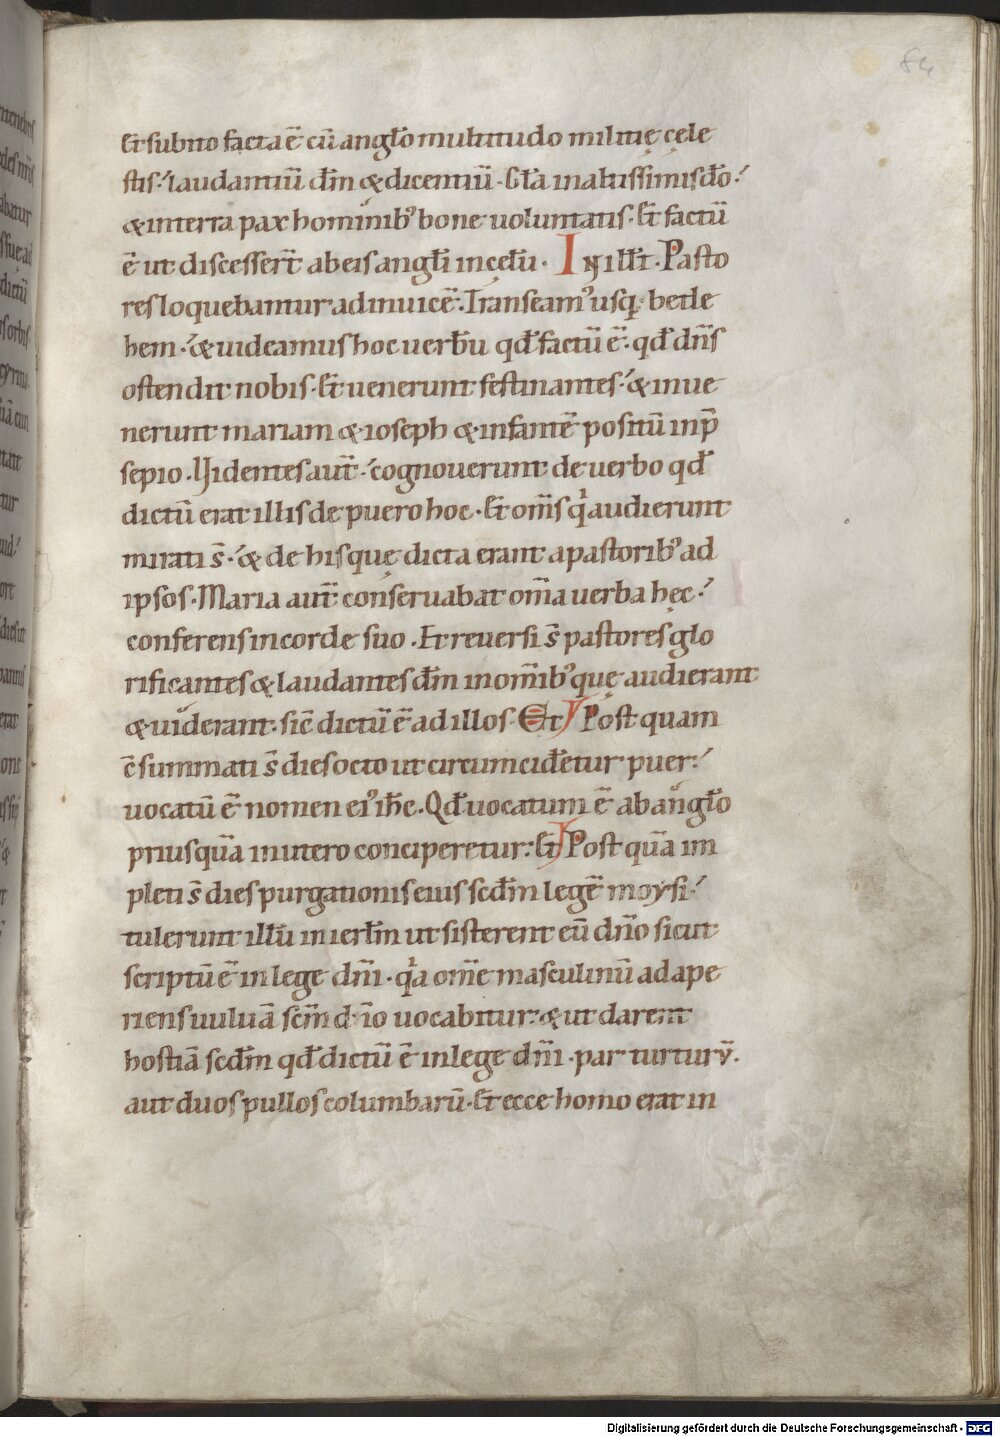 84
Et subito facta ē cū anglo multitudo militię cęle
stis·laudantiū dm̄ & dicentiū·Gl̄a in altissimis dō·
& in terra pax hominib' bone uoluntatis·Et factū
ē ut discesser̄t ab eis angl̄i in cęlū· In ill̄t·Pasto
res loquebantur ad inuicē·Transeam' usq; betle
hem·& uideamus hoc uerbū qđ factū ē·qđ dn̄s
ostendit nobis·Et uenerunt festinantes·& inue
nerunt mariam & ioseph & infantē positū in p̄
sepio·Videntes aut̄·cognouerunt de uerbo qđ
dictū erat illis de puero hoc·Et om̄s qi audierunt
mirati s̄·& de his quę dicta erant a pastorib' ad
ipsos·Maria aut̄ conseruabat om̄a uerba hęc·
conferens in corde suo·Et reuersi s̄ pastores glo
rificantes & laudantes dm̄ in om̄ib' quę audierant
& uiderant·sic̄ dictū ē ad illos·Et Postquam
c̄summati s̄ dies octo ut circumcideretur puer·
uocatū ē nomen ei' ihc̄·Qđ uocatum ē ab anglo
priusquā in utero conciperetur·Et Postquā im
pleti s̄ dies purgationis eius scđm legē moysi·
tulerunt illū in ierlm̄ ut sisterent eū dn̄o sicut
scriptū ē in lege dn̄i·qia om̄e masculinū adape
riens uuluā scm̄ dn̄o uocabitur·& ut darent
hostiā scđm qđ dictū ē in lege dn̄i·par turturū·
aut duos pullos columbarū·Et ecce homo erat in
Digitalisierung gefördert durch die Deutsche Forschungsgemeinschaft - DFG